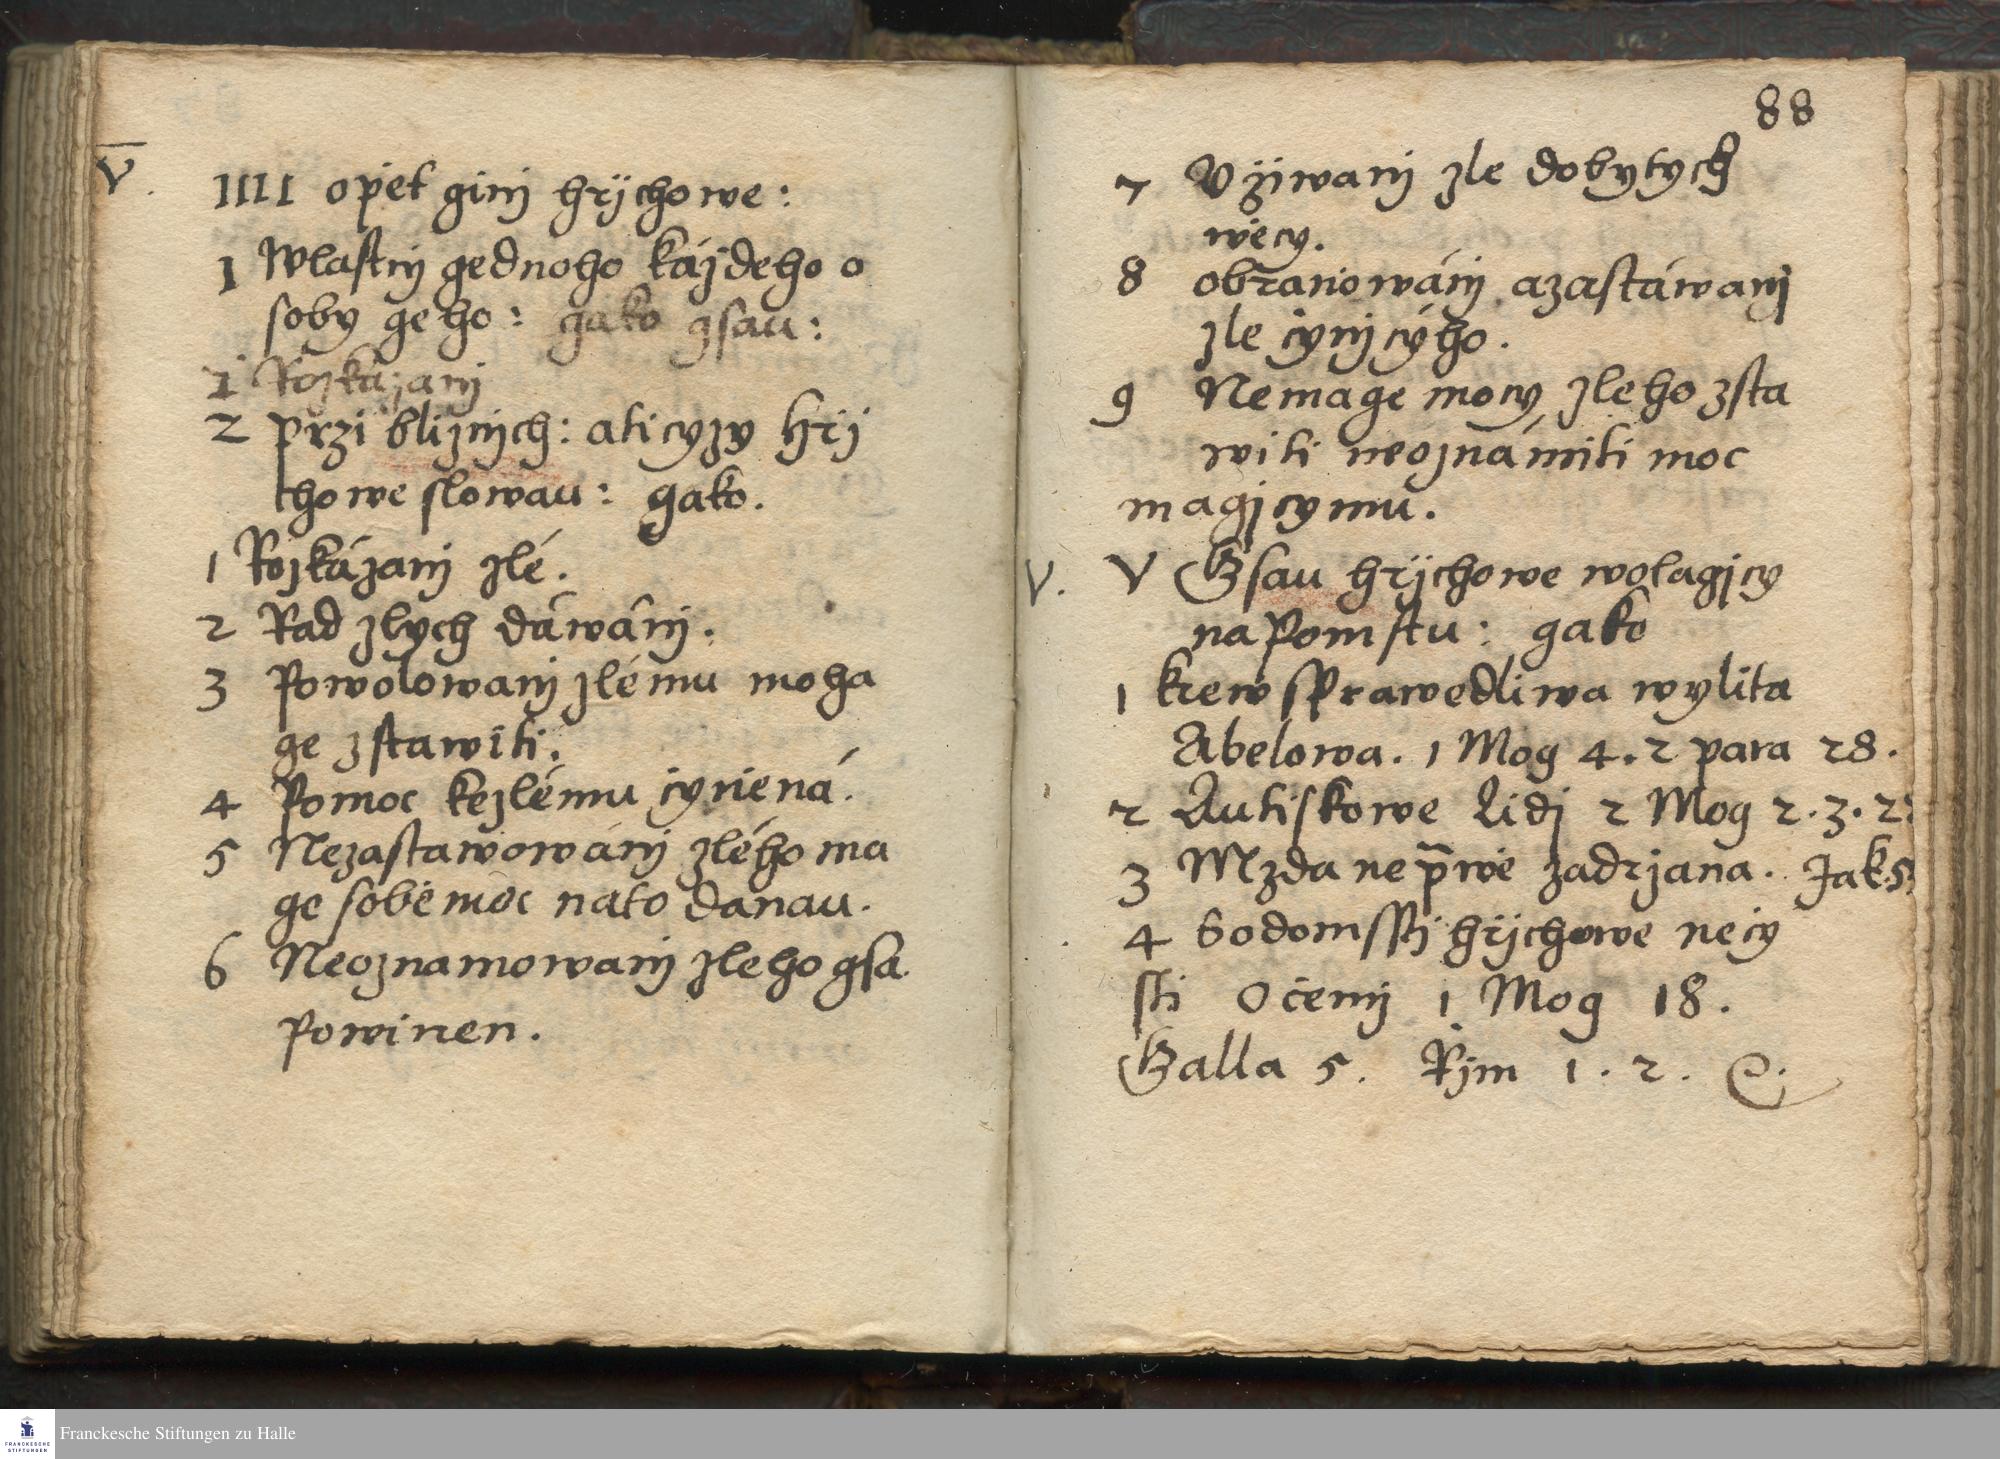 V.
IIII opět ginj hřjchowe:
1 Wlastnj gednoho káżdeho o
soby geho: gako gsau:
1 Rozkázanj
2 przi bliżnjch: a ti cyzy hřj
chowe slowau: gako.
1 Rozkázanj zlé.
2 Rad zlych dáwánj.
3 Powolowanj zlému moha
ge zstawiti.
4 Pomoc kezlému cyněná.
5 Nezastawowánj zlého ma
ge sobě moc nato danau.
6 Neoznamowanj zleho gsa
Powinen.
88
7 Vżiwanj zle dobytych
wěcy.
8 obranowánj azastáwanj
zle cynjcýho.
9 Nemage mocy zleho zsta
witi neoznámiti moc
magjcymu.
V. V Gsau hřjchowe wolagjcy
na Pomstu: gako
1 krew sprawedliwa wylita
Abelowa. 1 Mog 4. 2 para 28.
2 Autiskowe Lidj 2 Mog 2. 3. 22
3 Mzda nep̄wě zadrżana. Jak 5.
4 Sodomsstj hřjchowe nečy
sti O čemj 1 Mog 18.
Galla 5. Řjm 1. 2. &.
Franckesche Stiftungen zu Halle
FRANCKESCHE
STIFTUNGEN